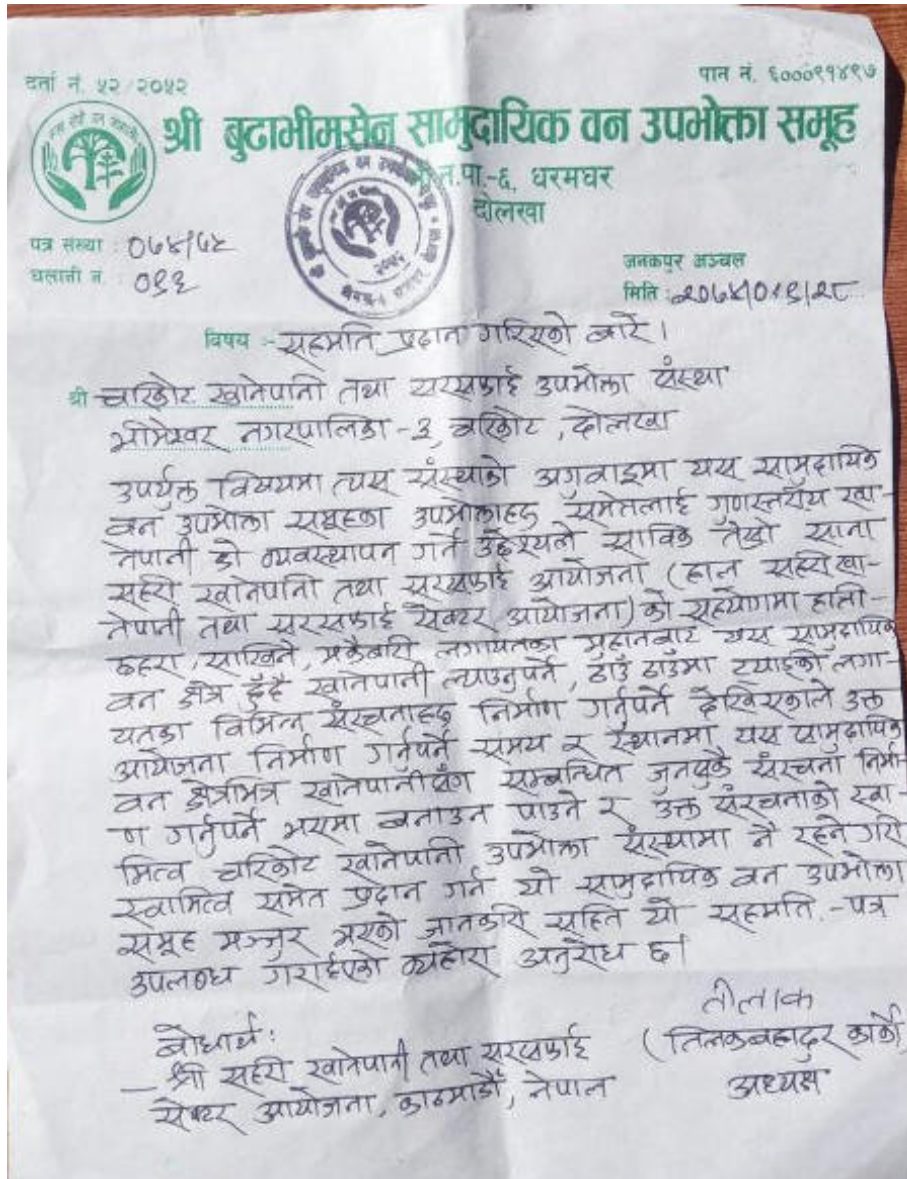 दर्ता नं. ५२/२०५२
पान नं. ६०००९१४९७
श्री बुटाभीमसेन सामुदायिक वन उपभोक्ता समूह
न.पा.-६, धरमघर
दोलखा
पत्र संख्या : ०७४/७५
चलानी नं. : ०१३
जनकपुर अञ्चल
मिति :
विषय :- सहमति प्रदान गरिएको बारे ।
श्री चरिकोट खानेपानी तथा सरसफाई उपभोक्ता संस्था
भीमेश्वर नगरपालिका - ३, चरिकोट, दोलखा
उपर्युक्त विषयमा त्यस संस्थाको अगुवाइमा यस सामुदायिक
वन उपभोक्ता समूहका उपभोक्ताहरु समेतलाई गुणस्तरीय खा-
नेपानी को व्यवस्थापन गर्ने उद्देश्यले साविक तेस्रो साना
सहरी खानेपानी तथा सरसफाई आयोजना (हाल सहरी खा-
नेपानी तथा सरसफाई सेक्टर आयोजना) को सहयोगमा
लगायतका मुहानबाट यस सामुदायिक
वन क्षेत्र हुँदै खानेपानी ल्याउनुपर्ने, ठाउँ ठाउँमा ट्याङ्की लगा-
यतका विभिन्न संरचनाहरु निर्माण गर्नुपर्ने देखिएकाले उक्त
आयोजना निर्माण गर्नुपर्ने समय र स्थानमा यस सामुदायिक
वन क्षेत्रभित्र खानेपानीसँग सम्बन्धित जुनसुकै संरचना निर्मा-
ण गर्नुपर्ने भएमा बनाउन पाउने र उक्त संरचनाको स्वा-
मित्व चरिकोट खानेपानी उपभोक्ता संस्थामा नै रहने गरी
स्वामित्व समेत प्रदान गर्न यो सामुदायिक वन उपभोक्ता
समूह मञ्जुर भएको जानकारी सहित यो सहमति-पत्र
उपलब्ध गराईएको व्यहोरा अनुरोध छ।
तीलाक
(तिलकबहादुर कार्की)
अध्यक्ष
बोधार्थ:
- श्री सहरी खानेपानी तथा सरसफाई
सेक्टर आयोजना, काठमाडौँ, नेपाल